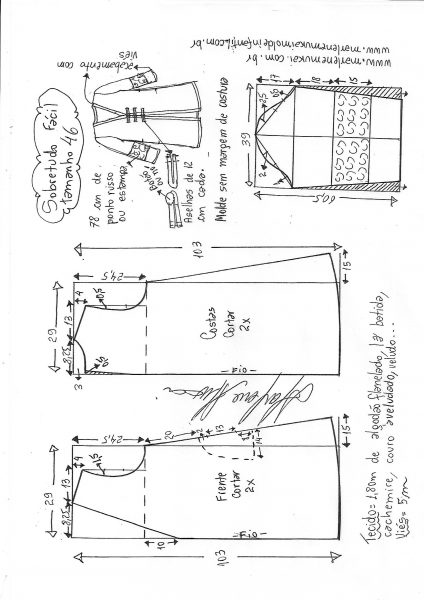 Sobretudo Fácil
tamanho 46
acabamento com
viés
78 cm de
ponto russo
ou estampa
Aselhas de 12
cm cada.
Molde sem margem de costura
www.marlenemukai.com.br
www.marlenemukaimoldeinfantil.com.br
17
18
15
25
39
60,5
103
24,5
4
13
0,5
29
8,25
3
Costas
Cortar
2x
Fio
15
24,5
4
13
1,5
29
8,25
10
20
13
14
Frente
Cortar
2x
Fio
15
103
Marlene Mukai
Tecido = 1,80m de algodão flanelado, lã batida,
cachemire, couro aveludado, veludo...
Viés = 5m